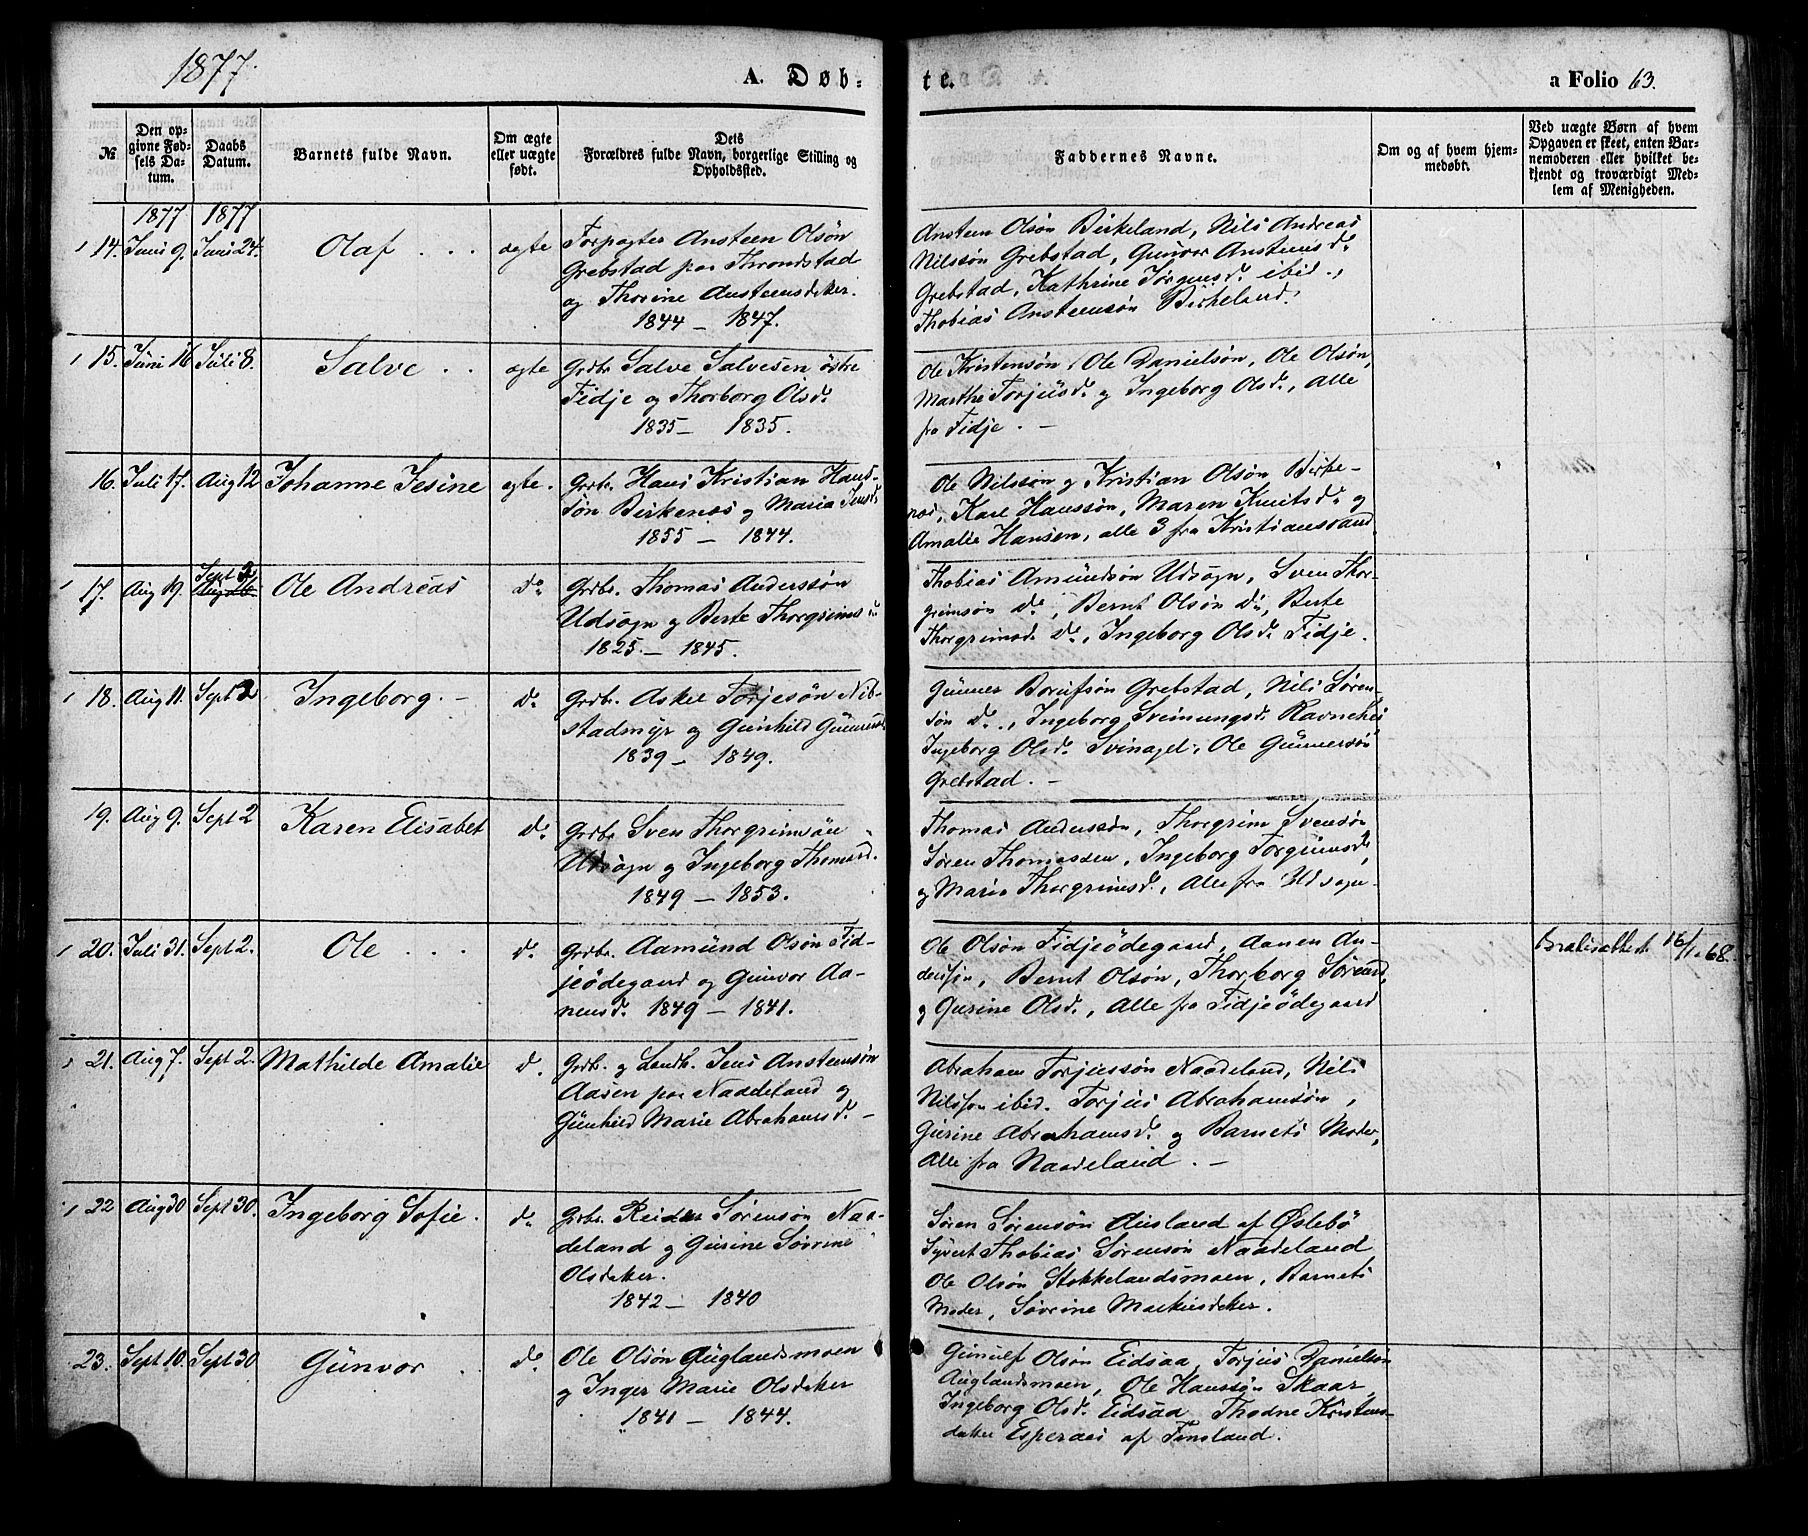 1877.
A. Døb-
te.
a Folio 63.
№
Den op-
givne Fød-
sels Da-
tum.
Daabs
Datum.
Barnets fulde Navn.
Om ægte
eller uægte
født.
Dets
Forældres fulde Navn, borgerlige Stilling og
Opholdssted.
Faddernes Navne.
Om og af hvem hjem-
medøbt.
Ved uægte Børn af hvem
Opgaven er skeet, enten Bar-
nemoderen eller hvilket be-
kjendt og troværdigt Med-
lem af Menigheden.
1877 1877
14. Juni 9. Juni 24. Olaf ægte
Forpagter Ansteen Olsön
Grebstad paa Throndstad
og Thorine Ansteensdatter.
1844 - 1847.
Ansteen Olsön Birkeland, Nils Andreas
Nilssön Grebstad, Gunvor Ansteensd.
Grebstad, Kathrine Jörgensd. ibid.,
Thobias Ansteensön Birkeland.
15. Juni 16 Juli 8. Salve ægte
Grdbr. Salve Salvesen östre
Fidje og Thorborg Olsd.
1835 - 1835.
Ole Kristensön, Ole Danielsön, Ole Olsön,
Marthe Torjusd. og Ingeborg Olsd., alle
fra Fidje. -
16. Juli 17. Aug 12 Johanne Jesine ægte.
Grdb. Hans Kristian Hans-
sön Birkenes og Maria Jensd.
1855 - 1844.
Ole Nilssön og Kristian Olsön Birke-
nes, Karl Hanssön, Maren Knutsd. og
Amalie Hansen, alle 3 fra Kristianssand
17. Aug 19. Sept 2 Aug 26. Ole Andreas do
Grdbr. Thomas Anderssön
Udsogn og Berte Thorgrimsd.
1825 - 1845.
Thobias Amundsön Udsogn, Sven Thor-
grimsön do, Bernt Olsön do, Berte
Thorgrimsd. do, Ingeborg Olsd. Fidje.
18. Aug 11. Sept 2 Ingeborg. - do
Grdbr. Askel Torjesön Nib-
stadmyr og Gunhild Gunnersd.
1839 - 1849.
Gunner Borufsön Grebstad, Nils Sören-
sön do., Ingeborg Sveinungsd. Ravnehei
Ingeborg Olsd. Svinagel, Ole Gunnersön
Grebstad. -
19. Aug 9. Sept 2 Karen Elisabet do
Grdbr. Sven Thorgrimsön
Udsogn og Ingeborg Thomasd.
1849 - 1853.
Thomas Anderssön, Thorgrim Svensön
Sören Thomassen, Ingeborg Torgrimsd.
og Maria Thorgrimsd., alle fra Udsogn
20. Juli 31. Sept 2. Ole do
Grdbr. Aamund Olsön Fid-
jeödegaard og Gunvor Aa-
nensd. 1849 - 1841.
Ole Olsön Fidjeödegaard, Aanen An-
densen, Bernt Olsön, Thorborg Sörensd.
og Gurine Olsd., Alle fra Fidjeödegaard
16/1-68.
21. Aug 7. Sept 2. Mathilde Amalie do
Grdbr. og Landh. Jens Ansteensön
Aasen paa Naadeland og
Gunhild Marie Abrahamsd. -
Abraham Torjussön Naadeland, Nils
Nilssön ibid. Torjus Abrahamsön,
Gurine Abrahamsd. og Barnets Moder,
Alle fra Naadeland. -
22 Aug 30 Sept 30. Ingeborg Sofie. do
Grdbr. Reidar Sörensön Naa-
deland og Gurine Sövrine
Olsdatter.
1842 - 1840
Sören Sörensön Ausland af Öslebö
Syvert Thobias Sörensön Naadeland
Ole Olsön Stokkelandsmoen, Barnets
Moder, Sövrine Markusdatter.
23. Sept 10. Sept 30 Gunvor do
Ole Olsön Auglandsmoen
og Inger Marie Olsdatter
1841 - 1844.
Gunulf Olsön Eidsaa, Torjus Danielsen
Auglandsmoen, Ole Hanssön Skaar,
Ingeborg Olsd. Eidsaa, Thodne Kristens-
datter Esperaas af Finsland.